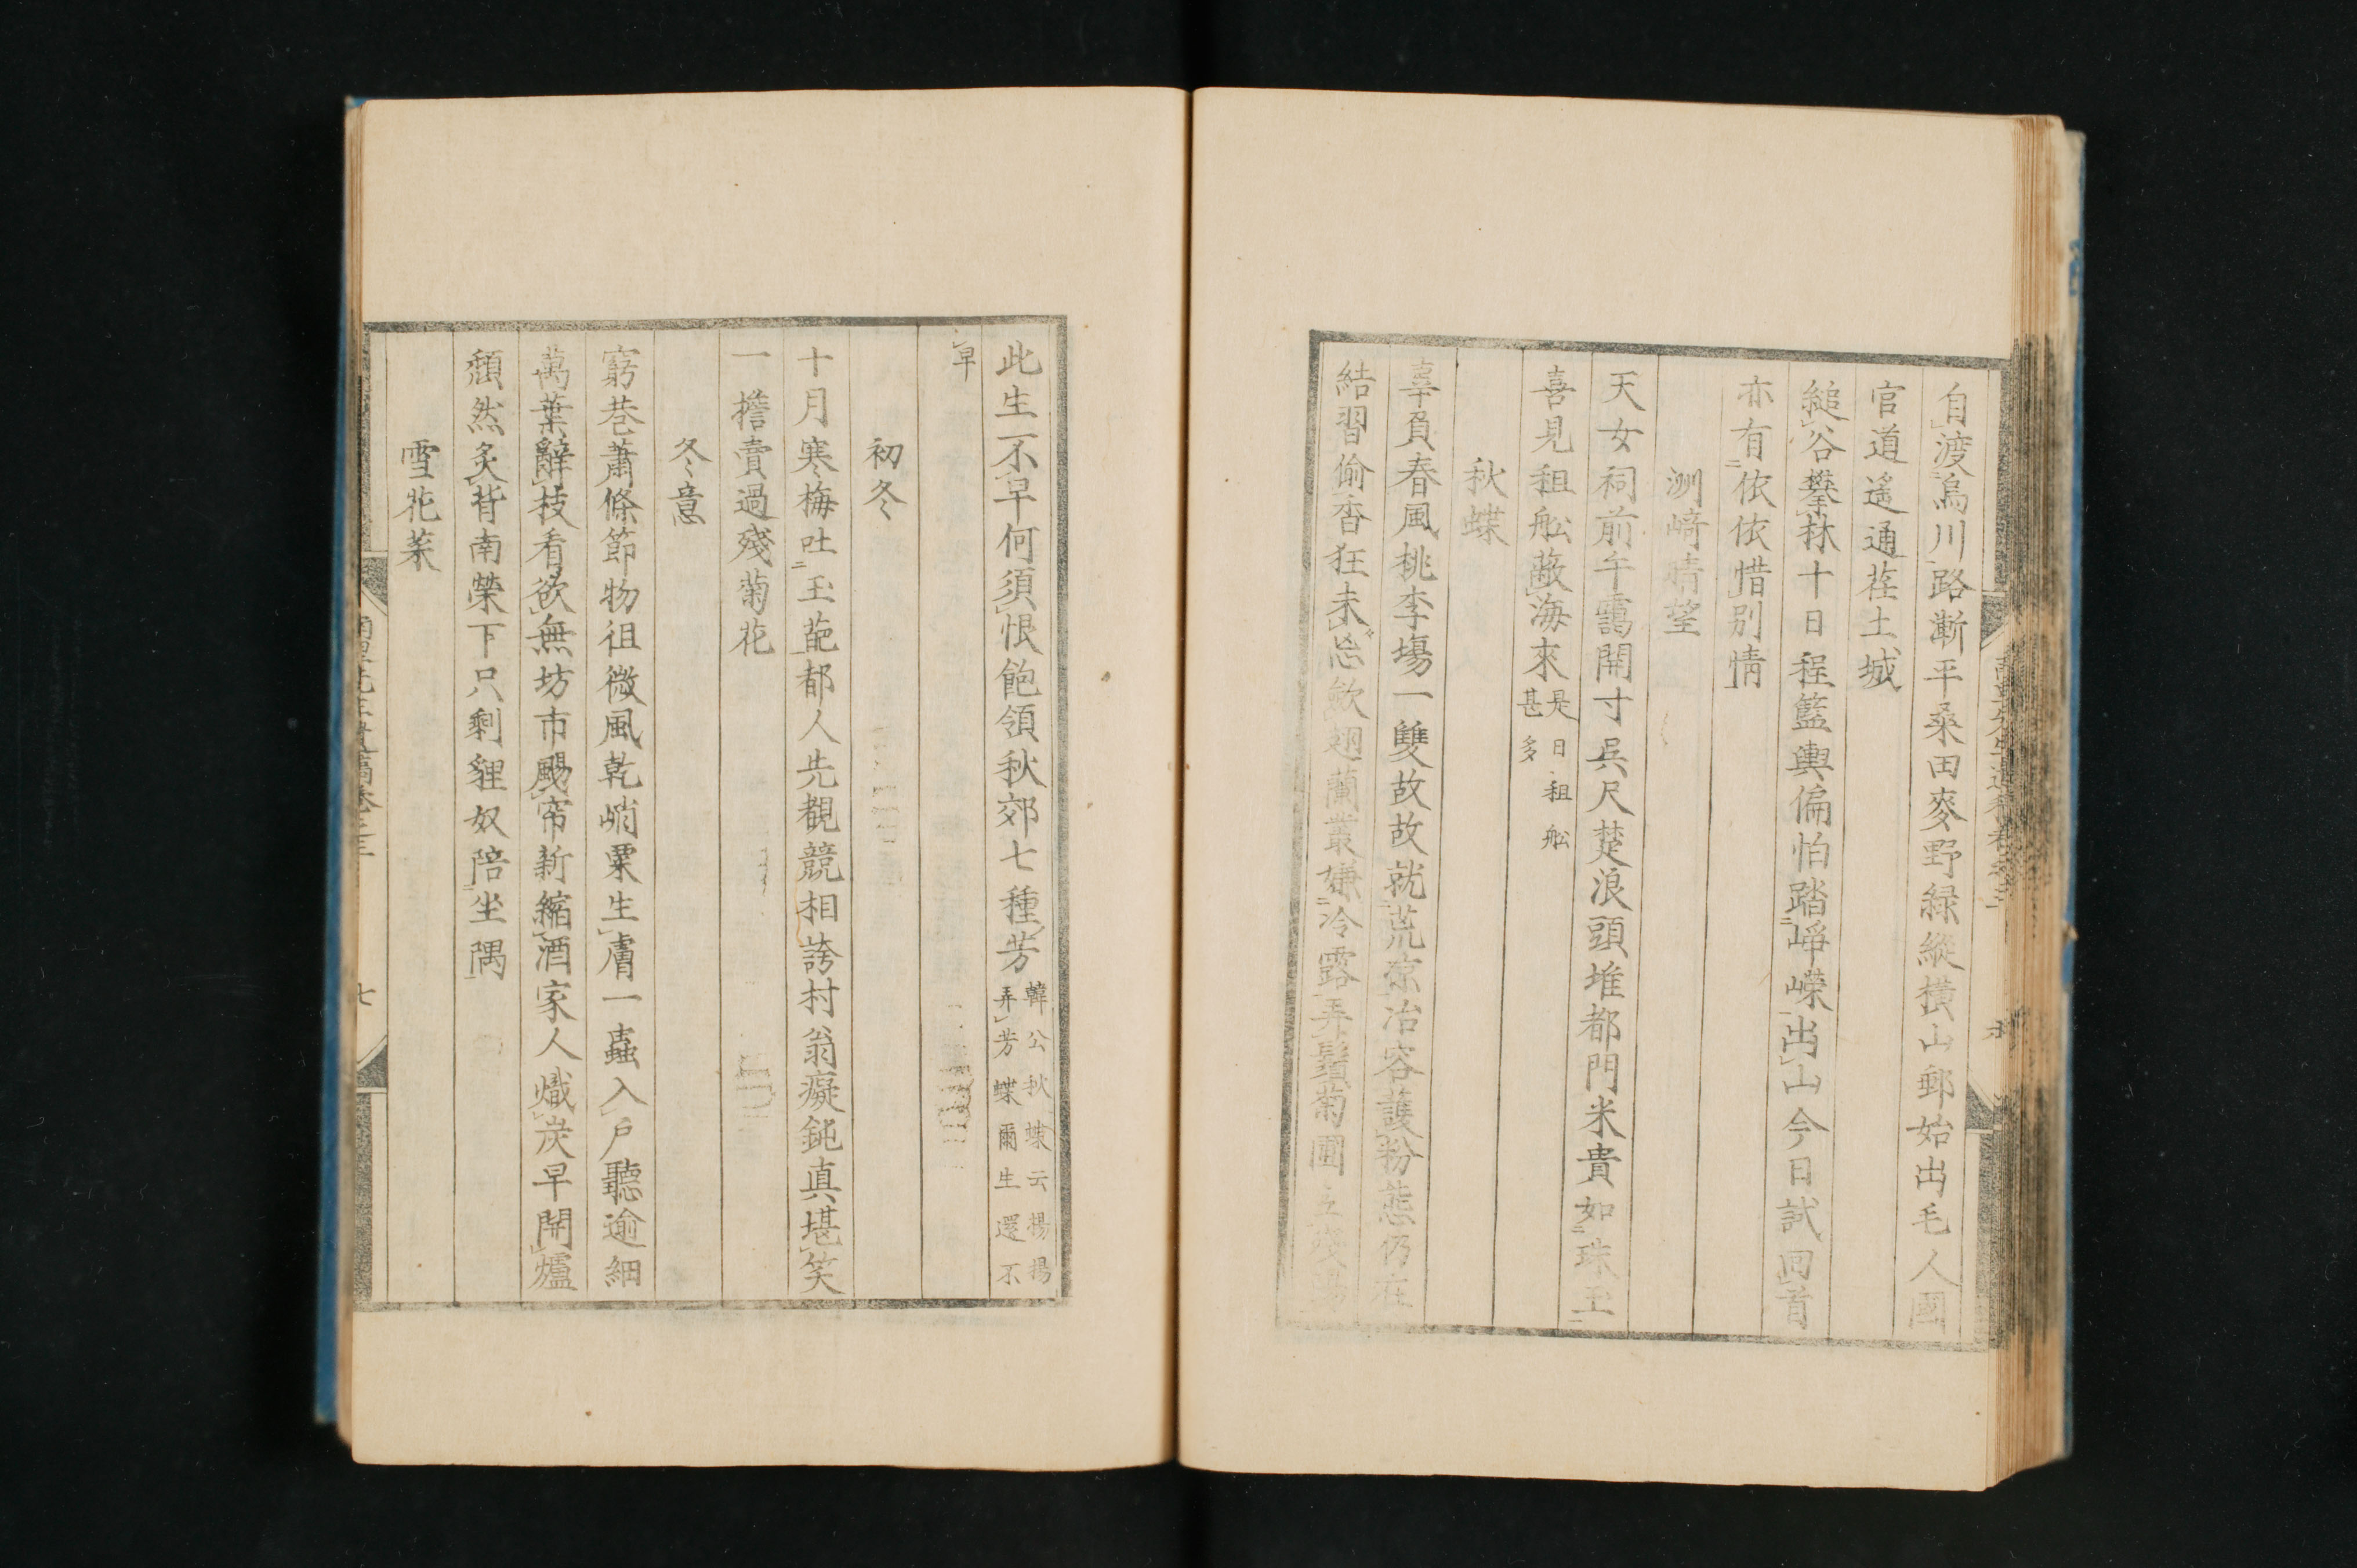 自渡烏川路漸平桑田麥野緑縱橫山郵始出毛人國
官道遙通荏土城
縋谷攀林十日程籃輿偏怕踏崢嶸出山今日試回首
亦有依依惜別情
洲﨑晴望
天女祠前午靄開寸呉尺楚浪頭堆都門米貴如珠玉
喜見租舩蔽海來是日租舩
甚多
秋蝶
辜負春風桃李場一雙故故就荒涼冶容護粉態仍在
結習偷香狂未忘斂翅蘭叢嫌冷露弄鬚菊圃立殘陽
此生不早何須恨飽領秋郊七種芳韓公秋蝶云楊揚
弄芳蝶爾生還不
早
初冬
十月寒梅吐玉葩都人先覩競相誇村翁癡鈍真堪笑
一擔賣過殘菊花
冬意
窮巷蕭條節物徂微風乾峭粟生膚一蟲入戶聽逾細
萬葉辭枝看欲無坊市颺帘新縮酒家人熾炭早開爐
頹然炙背南榮下只剩貍奴陪坐隅
雪花菜
七